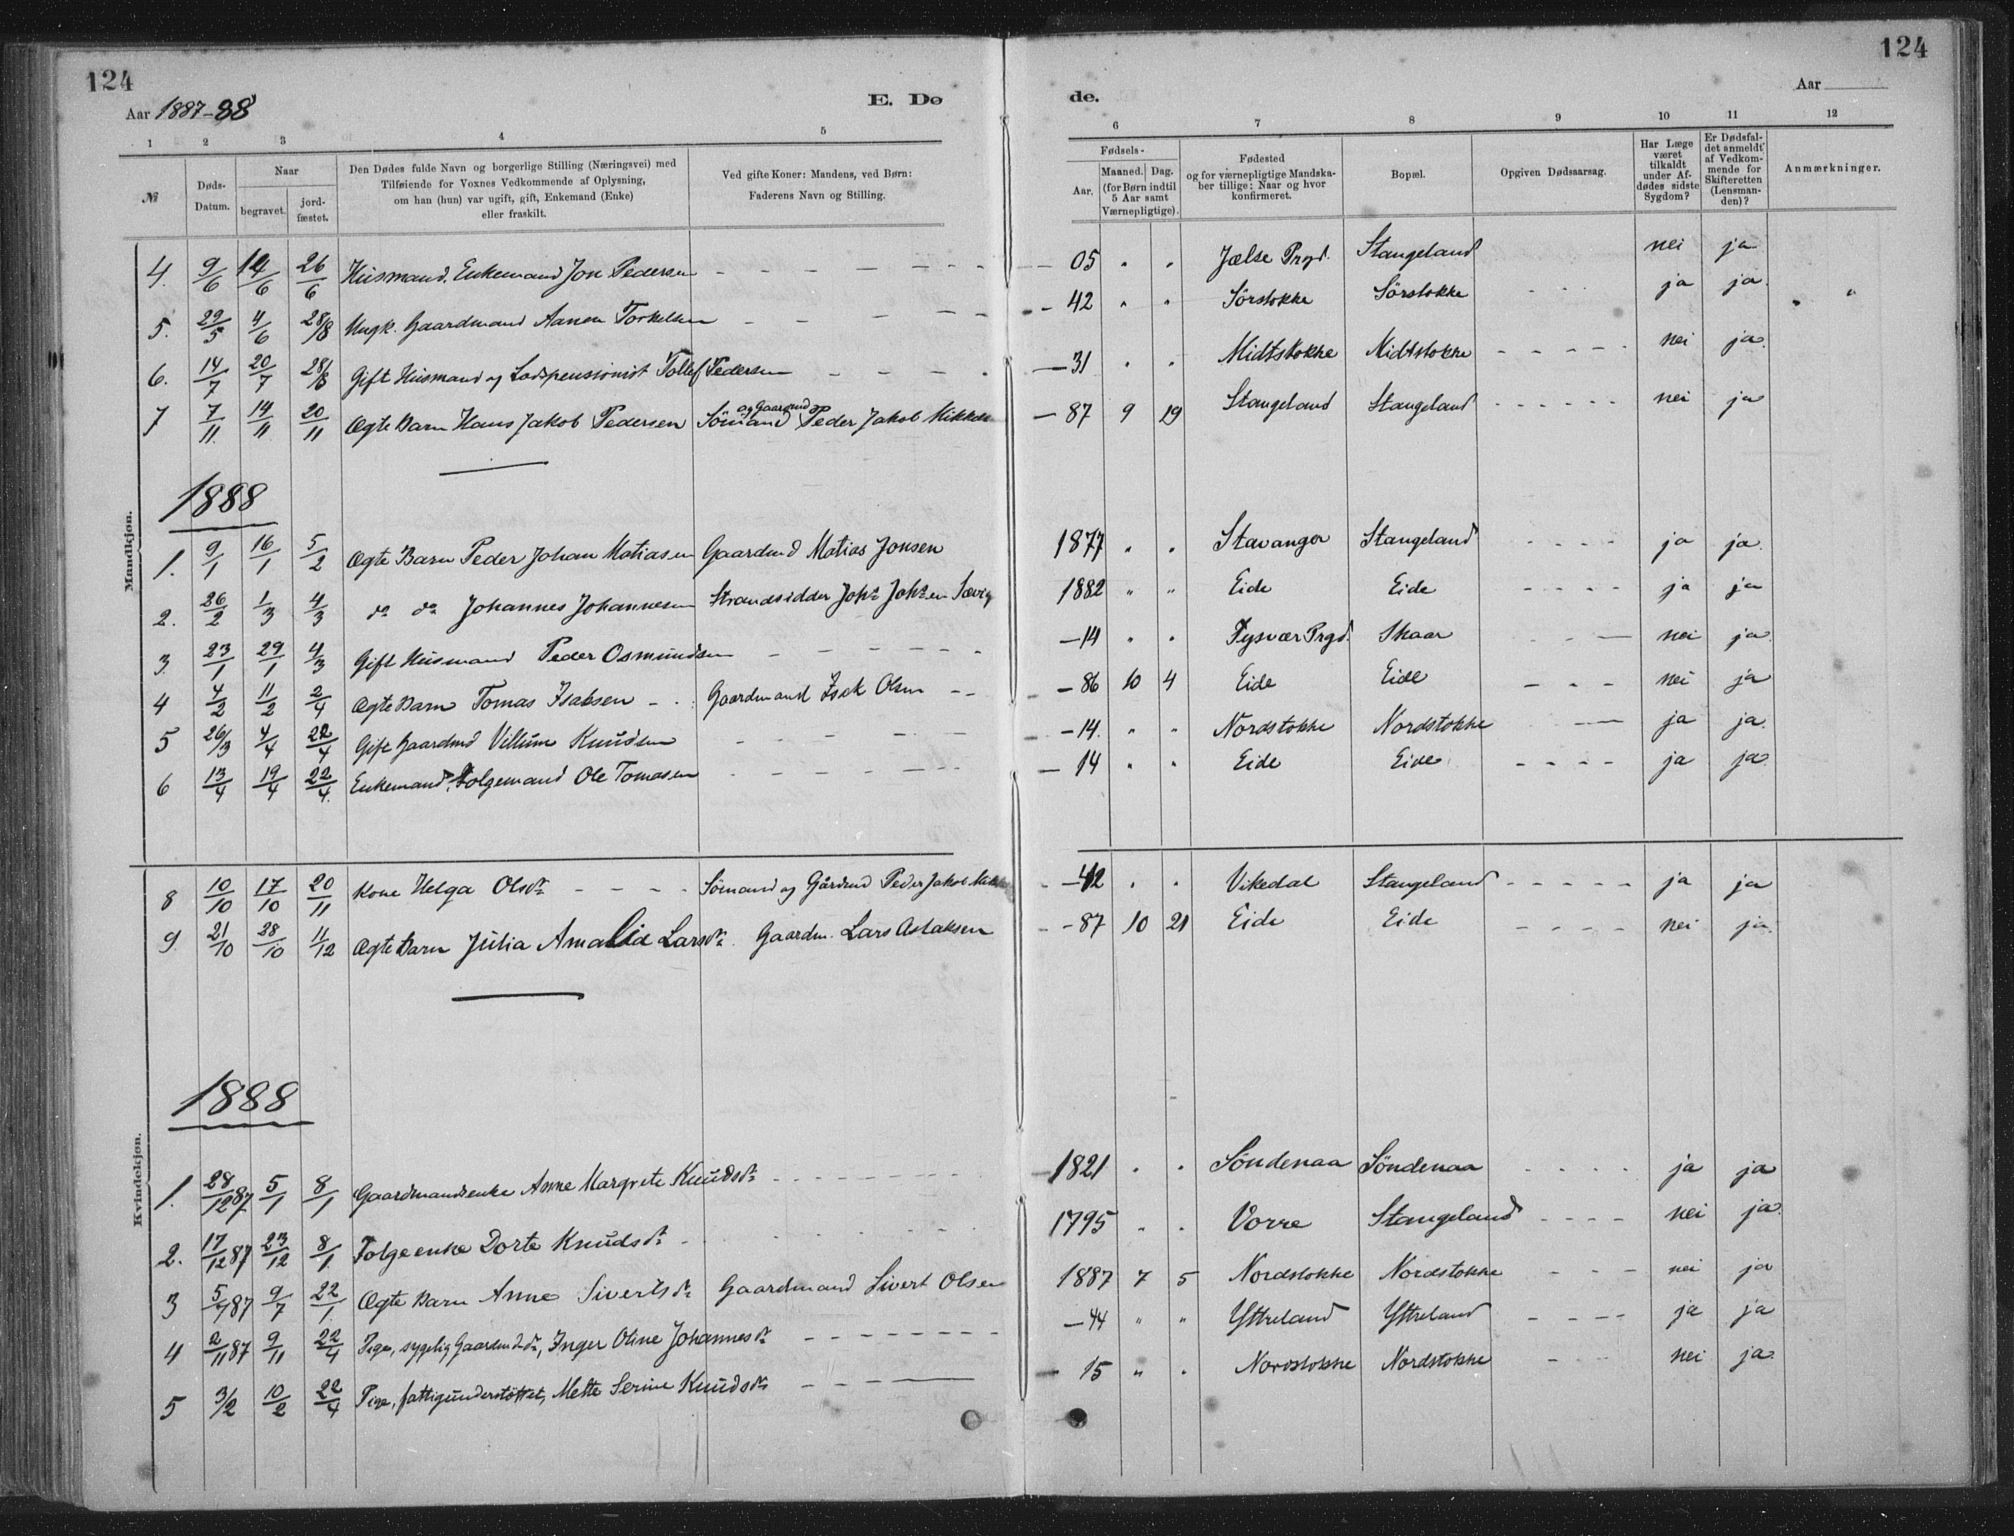 124
124
Aar 1887-88
E. Dø
de.
Aar
1 2 3 4 5 6 7 8 9 10 11 12
№
Døds-Datum.
Naar
begravet.
jord-fæstet.
Den Dødes fulde Navn og borgerlige Stilling (Næringsvei) med
Tilføiende for Voxnes Vedkommende af Oplysning,
om han (hun) var ugift, gift, Enkemand (Enke)
eller fraskilt.
Ved gifte Koner: Mandens, ved Børn:
Faderens Navn og Stilling.
Fødsels-
Aar.
Maaned. Dag.
(for Børn indtil
5 Aar samt
Værnepligtige).
Fødested
og for værnepligtige Mandska-
ber tillige: Naar og hvor
konfirmeret.
Bopæl.
Opgiven Dødsaarsag.
Har Læge
været
tilkaldt
under Af-
dødes sidste
Sygdom?
Er Dødsfal-
det anmeldt
af Vedkom-
mende for
Skifteretten
(Lensman-
den)?
Anmærkninger.
Mandkjøn.
4. 9/6 14/6 26/6 Husmand. Enkemand Jon Pedersen - - - - - - 05 " " Jælse Prgd. Stangeland nei ja
5. 29/5 4/6 28/8 Ungk. Gaardmand Aanen Torkelsen - - - - - 42 " " Sörstokke Sörstokke - - - ja ja " "
6. 14/7 20/7 28/8 Gift Husmand og Lodspensionist Tollef Pedersen - - - - 31 " " Midtstokke Midtstokke - - - - - nei ja.
og Gaardmd
7 7/11 14/11 20/11 Ægte Barn Hans Jakob Pedersen Sömand Peder Jakob Mikkels - 87 9 19 Stangeland Stangeland - - - - - - nei ja
1888
1. 9/1 16/1 5/2 Ægte Barn Peder Johan Matiasen Gaardmd Matias Jonsen 1877 " " Stavanger Stangeland - - - - ja ja.
2. 26/2 1/3 4/3 do do Johannes Johannesen Strandsidder Johs Johsen Sævig 1882 " " Eide Eide - - - - ja ja
3. 23/1 29/1 4/3 Gift Husmand Peder Osmundsen - - - - - - - 14 " " Tysvær Prgd. Skaar - - - nei ja.
4 4/2 11/2 2/4 Ægte Barn Tomas Isaksen - - Gaardmand Isak Olsen - - - 86 10 4 Eide Eide - - - nei ja
5 26/3 4/4 22/4 Gift Gaardmd Villum Knudsen - - - - - - - 14. " " Nordstokke Nordstokke - - ja ja.
6 13/4 19/4 22/4 Enkemand, Folgemand Ole Tomasen - - - - - - - 14 " " Eide Eide - - - - ja ja.
8 10/10 17/10 20/11 Kone Helga Olsdr - - - - Sömand og Gårdmd Peder Jakob - 42 " " Vikedal Stangeland - - - - - ja ja
9. 21/10 28/10 11/12 Ægte Barn Julia Amalia Larsdr. Gaardm. Lars Aslaksen - 87 10 21 Eide Eide - - - - nei ja.
1888
Kvindekjøn.
1. 28/12 87. 5/1 8/1 Gaardmandsenke Anne Margrete Knudsdr - - - - - - - 1821 " " Söndenaa Söndenaa - - - - ja ja
2. 17/12 87 23/12 8/1 Folgeenke Dorte Knudsdr - - - - 1795 " " Vorre Stangeland - - - - nei ja.
3 5/7 87 9/7 22/1. Ægte Barn Anne Sivertsdr Gaardmand Sivert Olsen 1887 7 5 Nordstokke Nordstokke - - - nei ja
4 2/11 87 9/11 22/4 Pige, sygelig Gaardmdsdr, Inger Oline Johannesdr - - - - - - - - 44 " " Ytreland Ytreland - - - - ja ja
5 3/2 10/2 22/4 Pige, fattigunderstöttet, Mette Serine Knudsdr - - - - 15 " " Nordstokke Nordstokke - - - nei ja.